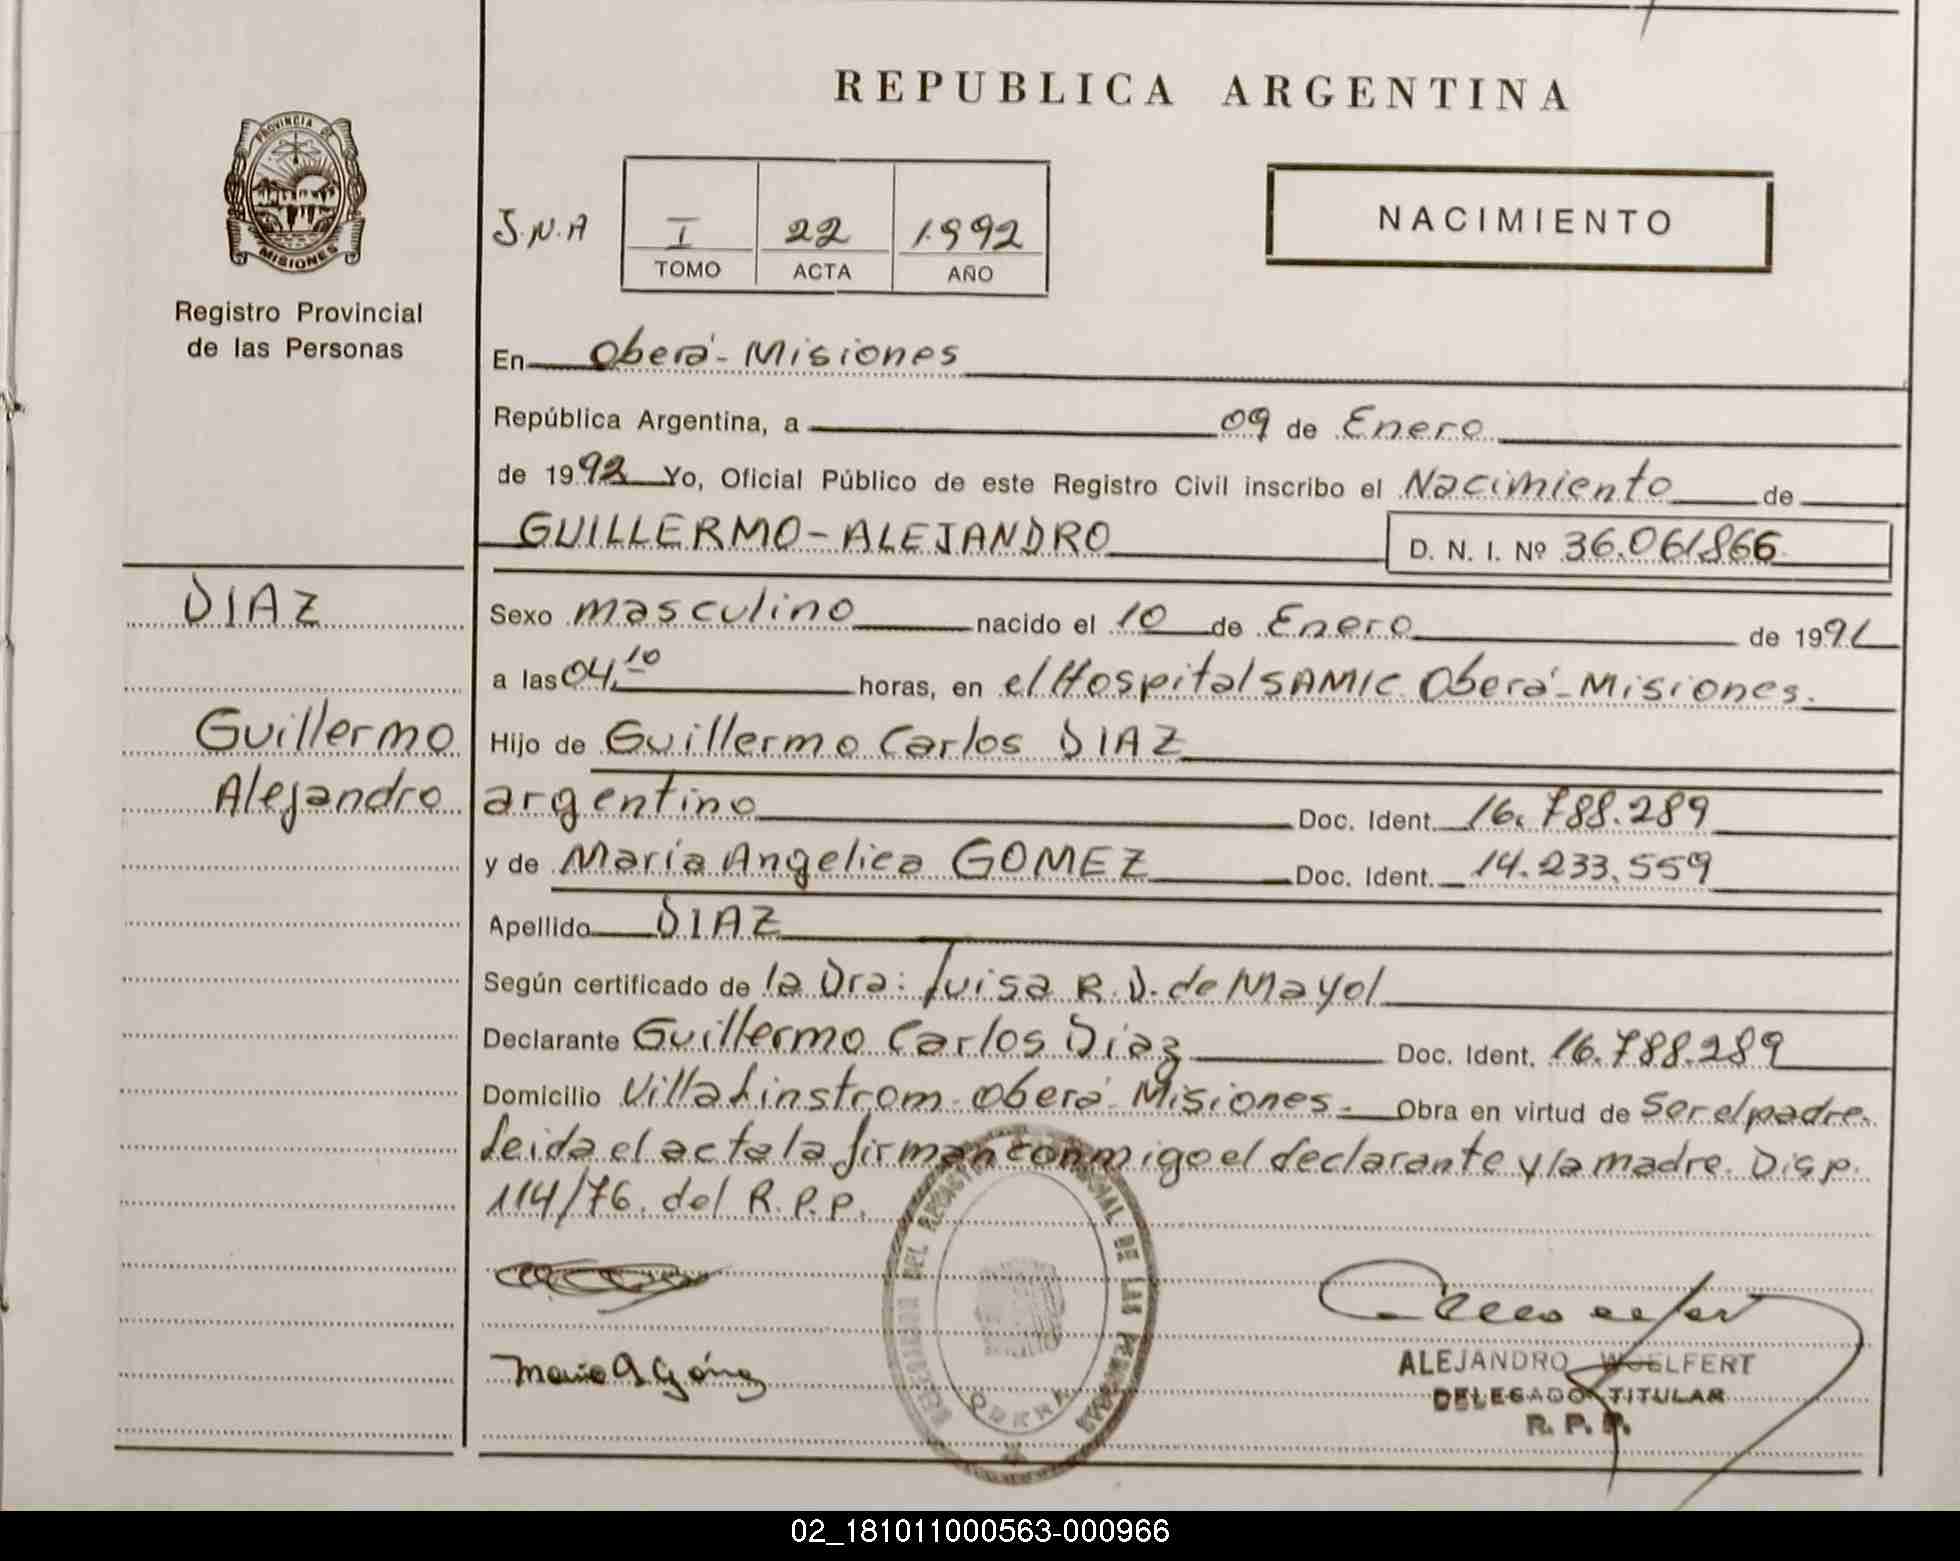 REPUBLICA ARGENTINA
PROVINCIA DE
MISIONES
Registro Provincial
de las Personas
J.N.A I 22 1992
TOMO ACTA AÑO
NACIMIENTO
En Oberá - Misiones
República Argentina, a 09 de Enero
de 1992 Yo, Oficial Público de este Registro Civil inscribo el Nacimiento de
GUILLERMO-ALEJANDRO D. N. I. Nº 36.061866
DIAZ
Guillermo
Alejandro
Sexo masculino nacido el 10 de Enero de 1991
a las 04,10 horas, en el Hospital SAMIC Oberá - Misiones.
Hijo de Guillermo Carlos DIAZ
argentino Doc. Ident. 16.788.289
y de María Angelica GOMEZ Doc. Ident. 14.233.559
Apellido DIAZ
Según certificado de la Dra: Luisa R.D. de Mayol
Declarante Guillermo Carlos Diaz Doc. Ident. 16.788.289
Domicilio Villa Linstrom - Oberá - Misiones - Obra en virtud de Ser el padre.
Leida el acta la firman conmigo el declarante y la madre. Disp.
114/76. del R.P.P.
DEL DE LAS
OBERA
Maria A Gómez
ALEJANDRO WOELFERT
DELEGADO TITULAR
R. P. P.
02_181011000563-000966